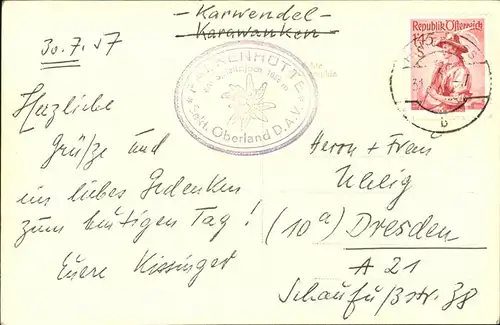 - Karwendel -
- Karawanken -
30.7.57
FALKENHÜTTE
Sekt. Oberland D.A.V.
Republik Österreich
1.45
Herzliche
Grüße und
ein liebes Gedenken
zum heutigen Tag!
Euere Kissinger
Herrn + Frau
Uhlig
(10a) Dresden
A 21
Schaufußstr. 38